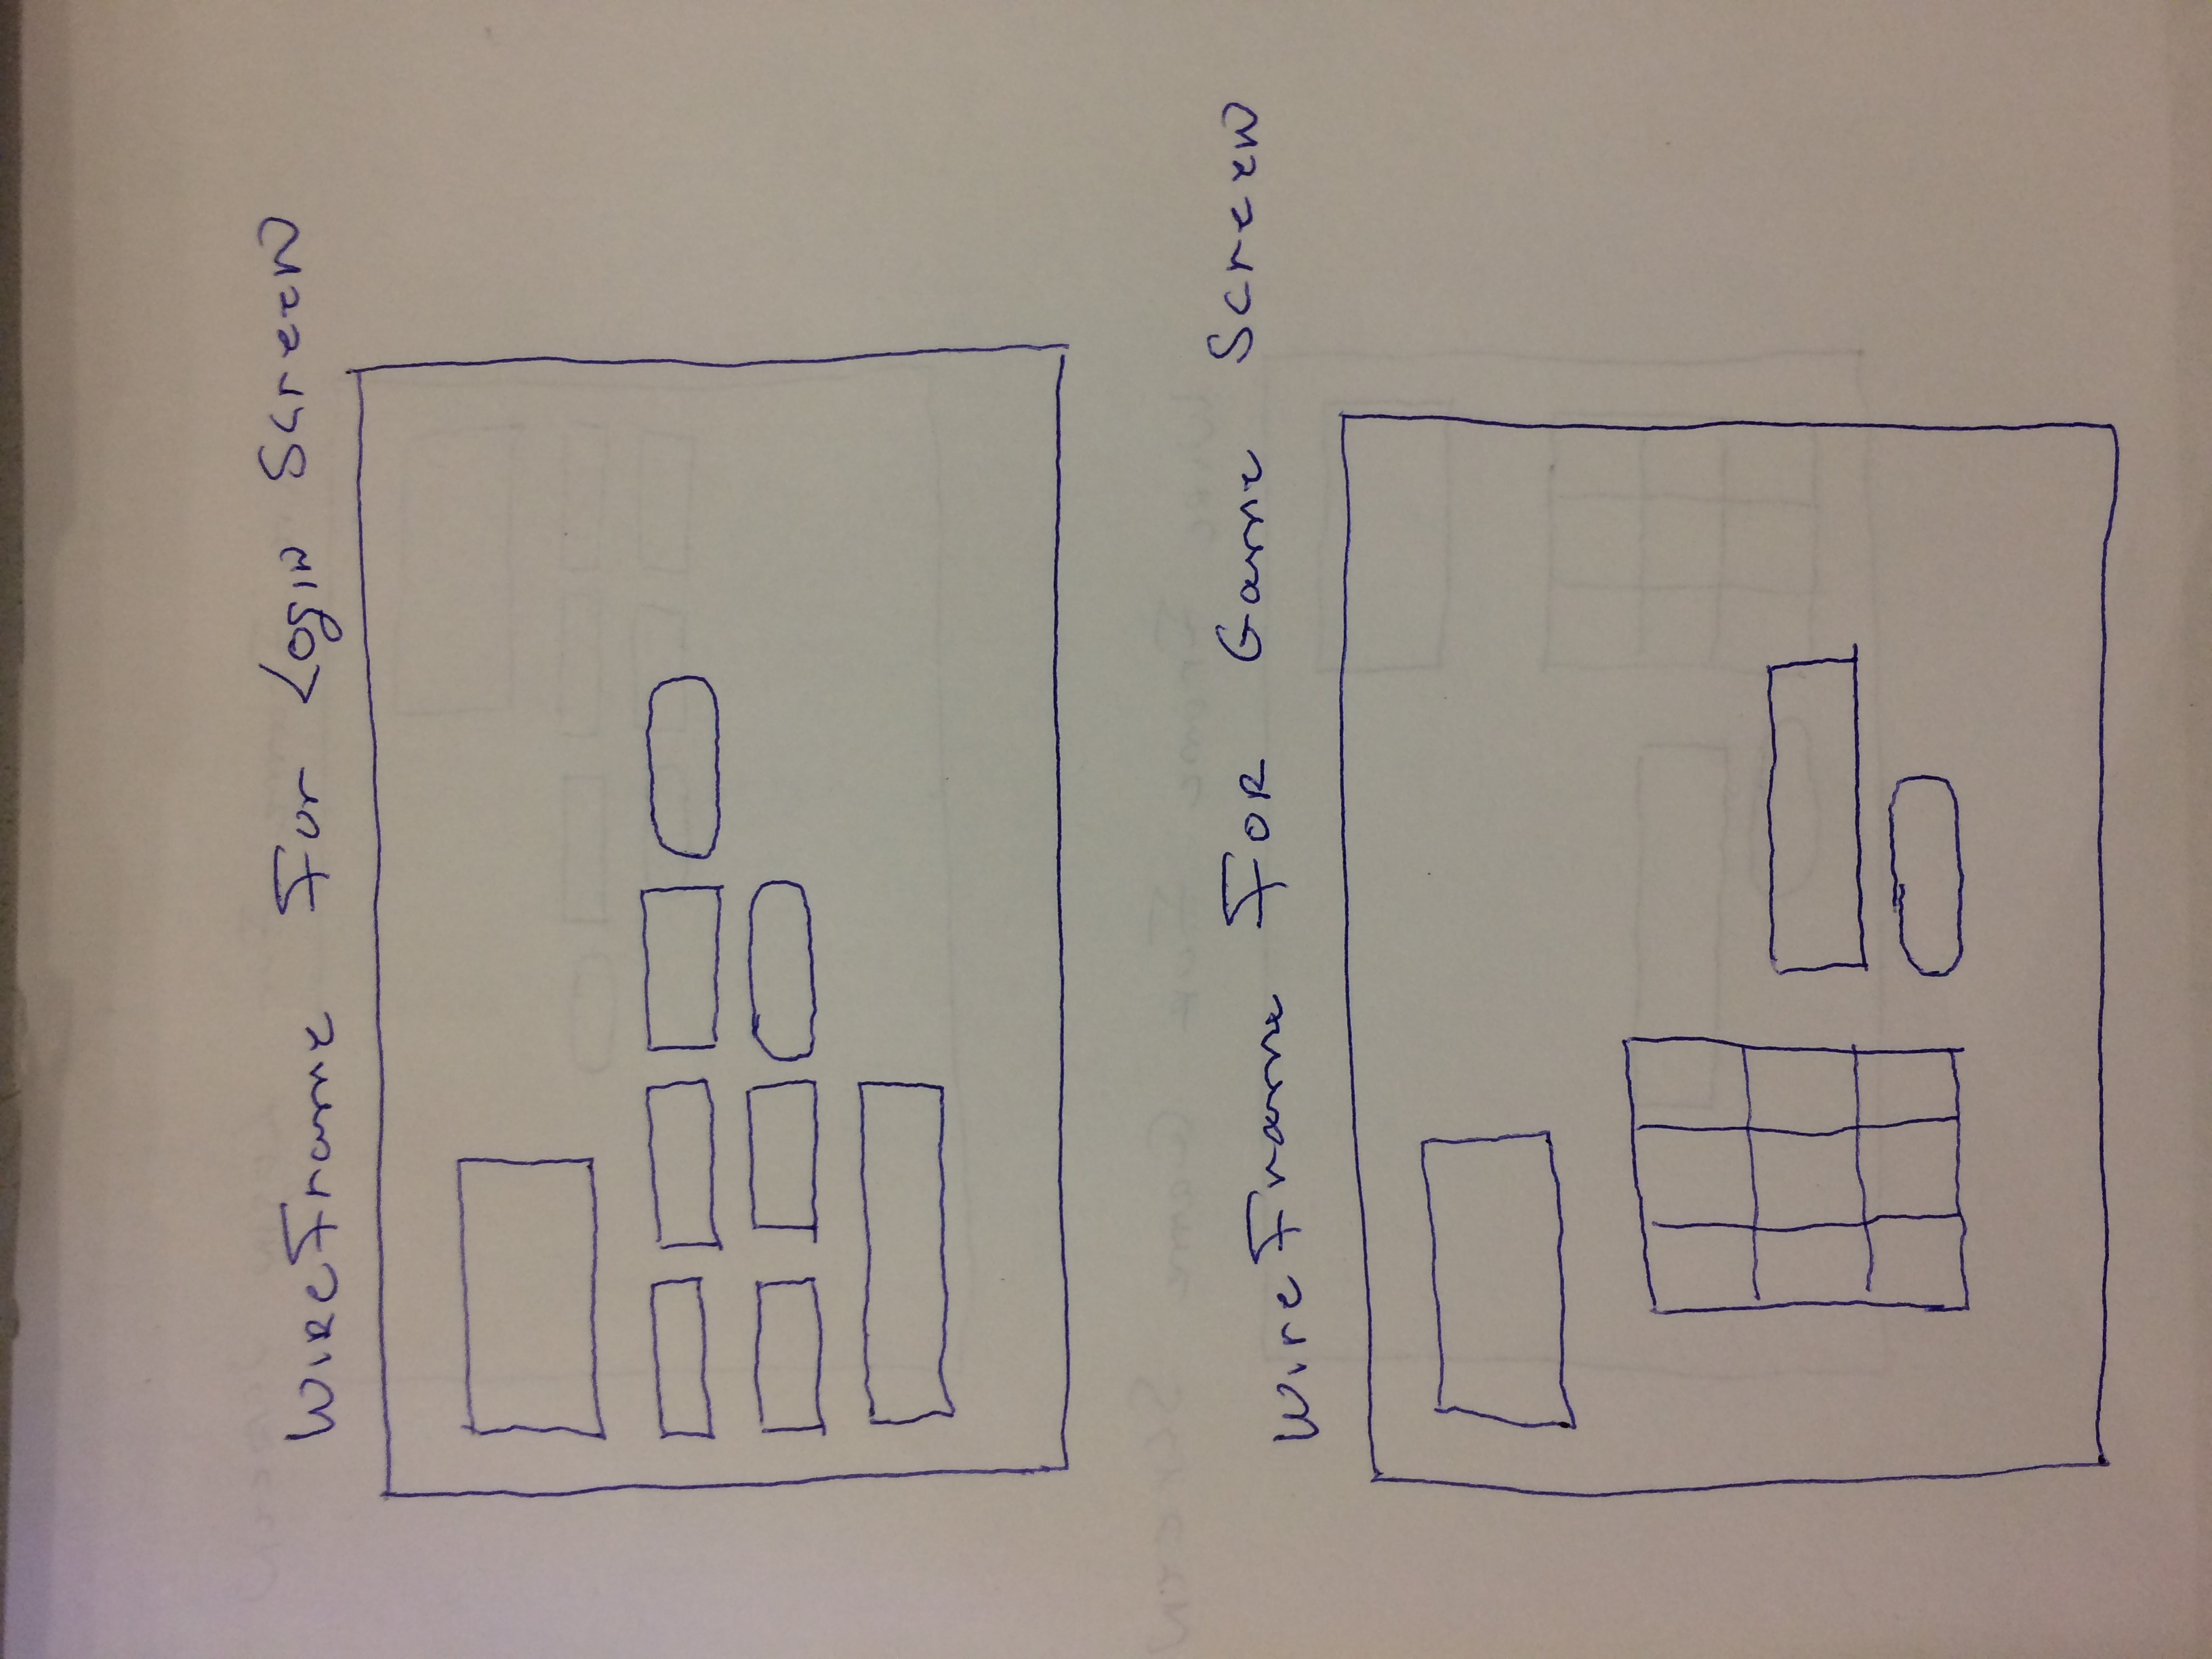 WireFrame For Login Screen
WireFrame For Game Screen